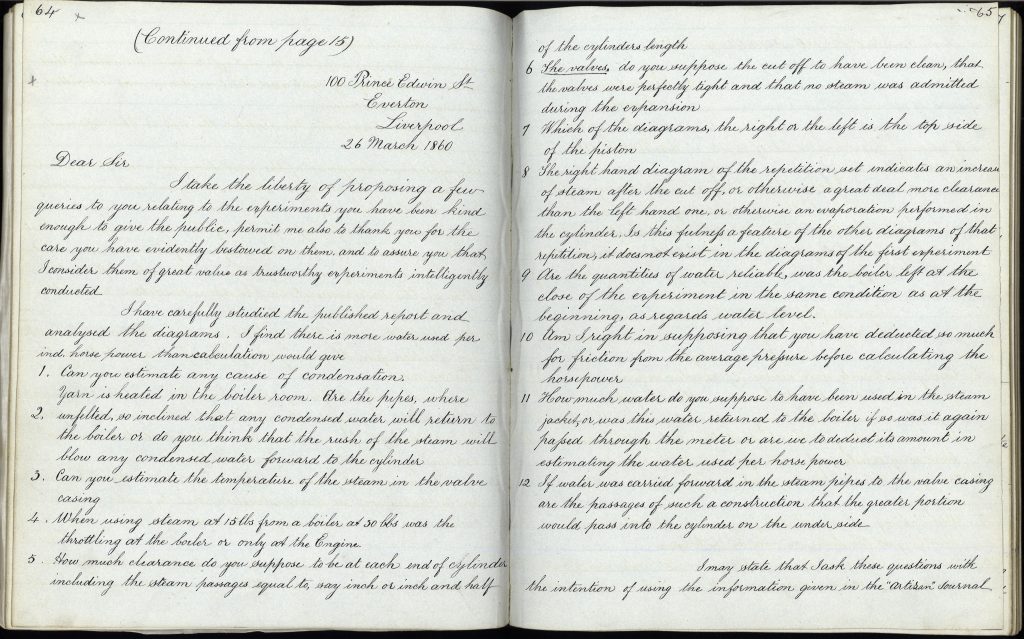 64
(Continued from page 15)
100 Prince Edwin St
Everton
Liverpool
26 March 1860
Dear Sir
I take the liberty of proposing a few
queries to you relating to the experiments you have been kind
enough to give the public, permit me also to thank you for the
care you have evidently bestowed on them, and to assure you that
I consider them of great value as trustworthy experiments intelligently
conducted
I have carefully studied the published report and
analysed the diagrams. I find there is more water used per
ind. horse power than calculation would give
1. Can you estimate any cause of condensation.
Yarn is healed in the boiler room. Are the pipes, where
2. unfelted, so inclined that any condensed water will return to
the boiler or do you think that the rush of the steam will
blow any condensed water forward to the cylinder
3. Can you estimate the temperature of the steam in the valve
casing
4. When using steam at 15 lbs from a boiler at 30 lbs was the
throttling at the boiler or only at the Engine.
5. How much clearance do you suppose to be at each end of cylinder
including the steam passages equal to, say inch or inch and half
65
of the cylinders length
6 The valves, do you suppose the cut off to have been clean, that
the valves were perfectly tight and that no steam was admitted
during the expansion
7 Which of the diagrams, the right or the left is the top side
of the piston
8 The right hand diagram of the repetition set indicates an increase
of steam after the cut off, or otherwise a great deal more clearance
than the left hand one, or otherwise an evaporation performed in
the cylinder. Is this fulness a feature of the other diagrams of that
repetition, it does not exist in the diagrams of the first experiment
9 Are the quantities of water reliable, was the boiler left at the
close of the experiment in the same condition as at the
beginning, as regards water level.
10 Am I right in supposing that you have deducted so much
for friction from the average pressure before calculating the
horsepower
11 How much water do you suppose to have been used in the steam
jacket, or was this water returned to the boiler if so was it again
passed through the meter or are we to deduct its amount in
estimating the water used per horse power
12 If water was carried forward in the steam pipes to the valve casing
are the passages of such a construction that the greater portion
would pass into the cylinder on the under side
I may state that I ask these questions with
the intention of using the information given in the "Artizan" Journal